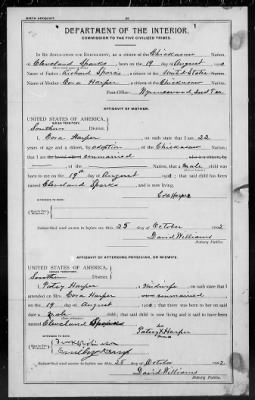 BIRTH AFFIDAVIT.
DEPARTMENT OF THE INTERIOR.
COMMISSION TO THE FIVE CIVILIZED TRIBES.
IN RE APPLICATION FOR ENROLLMENT, as a citizen of the Chickasaw Nation,
of Cleveland Sparks, born on the 19 day of August
Name of Father: Richard Sparks a citizen of the United States Nation.
Name of Mother: Cora Harper a citizen of the Chickasaw Nation.
Post-Office Wynnewood Ind Ter
AFFIDAVIT OF MOTHER.
UNITED STATES OF AMERICA
INDIAN TERRITORY
Southern District.
I, Cora Harper, on oath state that I am 22
years of age and a citizen, by adoption of the Chickasaw Nation;
unmarried
that a male child was
born to me on 19th day of August; that said child has been
named Cleveland Sparks, and is now living.
Cora Harper
Subscribed and sworn to before me this 25 day of October
David Williams
Notary Public.
AFFIDAVIT OF ATTENDING PHYSICIAN, OR MIDWIFE.
UNITED STATES OF AMERICA
INDIAN TERRITORY
Southern District.
I, Patsy Harper, a Midwife, on oath state that I
attended on Cora Harper unmarried
on the 19 day of August; that there was born to her on said
date a male child; that said child is now living and is said to have been
named Cleveland Sparks
Patsy X Harper
Subscribed and sworn to before me this 25 day of October
David Williams
Notary Public.